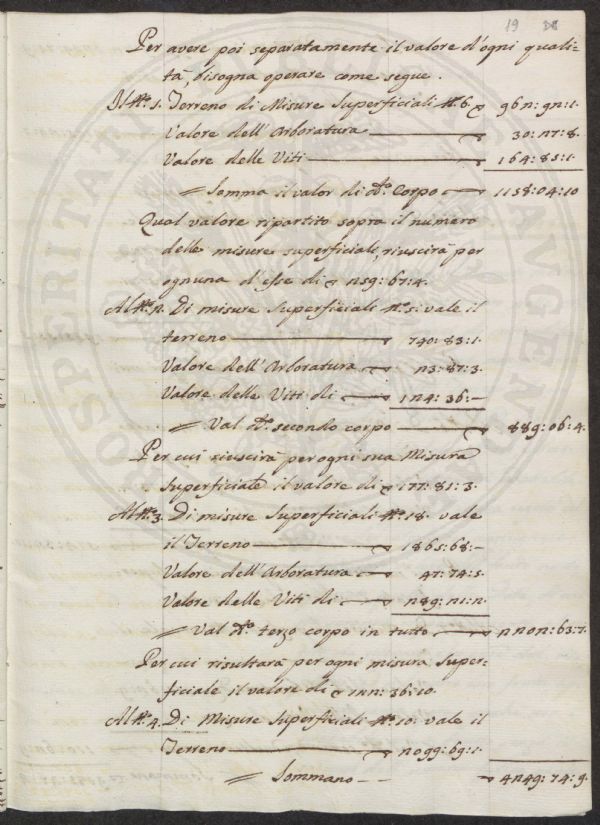 19
Per avere poi separatamente il valore d'ogni quali=
tà, bisogna operare come segue.
Il Nº. 1. Terreno di Misure Superficiali Nº. 6. 962: 92: 1.
Valore dell'Arboratura 30: 27: 8.
Valore delle Viti 164: 85: 1.
= Somma il valor di dº. Corpo 1158: 04: 10
Qual valore ripartito sopra il numero
delle misure superficiali, riuscirà per
ognuna d'esse di 259: 67: 4.
Al Nº. 2. Di misure Superficiali Nº. 5: vale il
terreno 740: 83: 1.
Valore dell'Arboratura 23: 87: 3.
Valore delle Viti di 124: 36: –
= Val dº. secondo corpo 889: 06: 4.
Per cui riuscirà per ogni sua Misura
Superficiale il valore di 177: 81: 3.
Al Nº. 3. Di misure Superficiali Nº. 18. vale
il Terreno 1865: 68: –
Valore dell'Arboratura 47: 74: 5.
Valore delle Viti di 289: 21: 2.
= Val dº. terzo corpo in tutto 2202: 63: 7.
Per cui risultarà per ogni misura Super=
ficiale il valore di 122: 36: 10.
Al Nº. 4. Di Misure Superficiali Nº. 10: vale il
Terreno 2099: 69: 1.
= Sommano 4249: 74: 9.